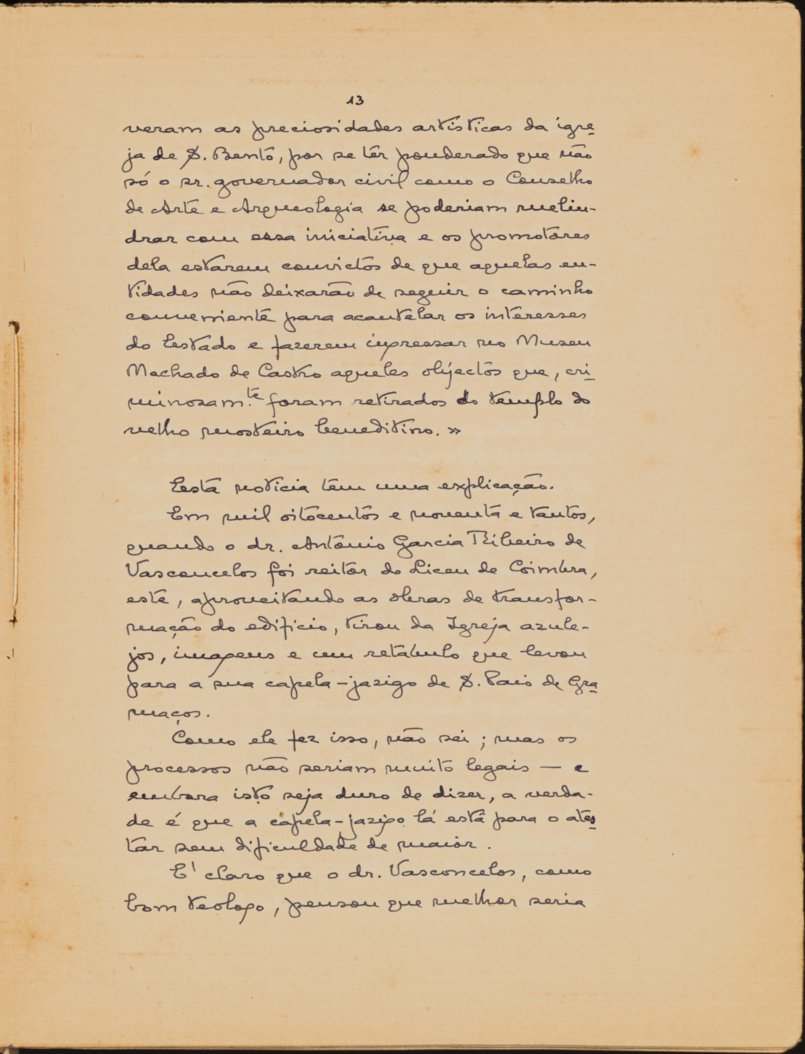 13
veram as preciosidades artísticas da igre-
ja de S. Bento, por se têr ponderado que não
só o sr. governador civil como o Conselho
de Arte e Arqueologia se poderiam melin-
drar com essa iniciativa e os promotores
dela estarem convictos de que aquelas en-
tidades não deixarão de seguir o caminho
conveniente para acautelar os interesses
do Estado e fazerem ingressar no Museu
Machado de Castro aqueles objectos que, cri-
minosam.te foram retirados do templo do
velho mosteiro beneditino. »
Esta noticia têm uma explicação.
Em mil oitocentos e noventa e tantos,
quando o dr. António Garcia Ribeiro de
Vasconcelos foi reitor do Liceu de Coimbra,
este, aproveitando as obras de transfor-
mação do edifício, tirou da Igreja azule-
jos, imagens e um retabulo que levou
para a sua capela-jazigo de S. Paio de Gra-
maços.
Como ele fez isso, não sei; mas os
processos não seriam muito legais — e
embora isto seja duro de dizer, a verda-
de é que a capela-jazigo lá está para o ates-
tar sem dificuldade de maior.
E' claro que o dr. Vasconcelos, como
bom teologo, pensou que melhor seria